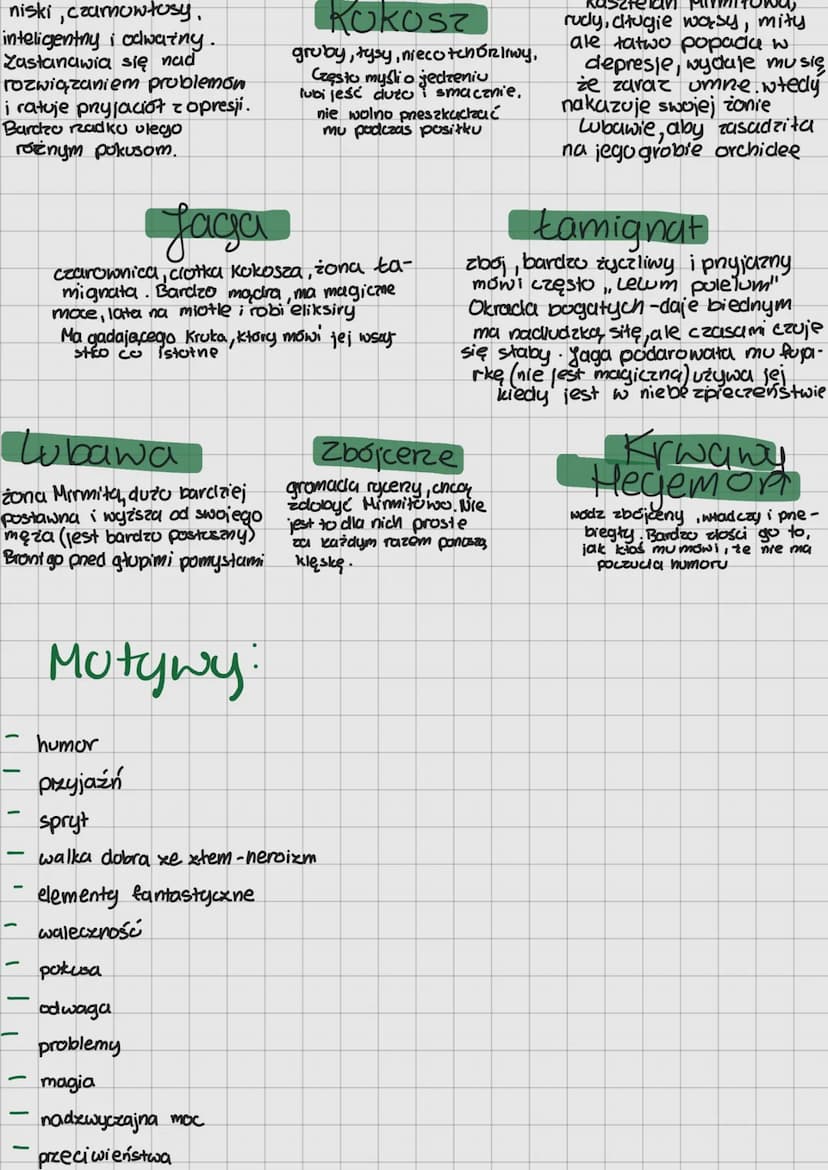 niski, czarnowłosy,
inteligentny i odważny.
Zastanawia się nad
rozwiązaniem problemów
i ratuje przyjaciół z opresji.
Bardzo rzadko ulega
różnym pokusom.
Kokosz
gruby, łysy, nieco tchórzliwy.
Często myśli o jedzeniu
lubi jeść dużo i smacznie.
nie wolno przeszkadzać
mu podczas posiłku
kasztelan Mirmiłowa,
rudy, długie wąsy, miły
ale łatwo popada w
depresję, wydaje mu się
że zaraz umrze. wtedy
nakazuje swojej żonie
Lubawie, aby zasadziła
na jego grobie orchidee
Jaga
czarownica, ciotka Kokosza, żona Ła-
mignata. Bardzo mądra, ma magiczne
moce, lata na miotle i robi eliksiry
Ma gadającego Kruka, który mówi jej wszy
stko co istotne
Łamignat
zbój, bardzo życzliwy i przyjazny
mówi często „Lelum polelum"
Okrada bogatych - daje biednym
ma nadludzką siłę, ale czasami czuje
się słaby. Jaga podarowała mu fuja-
rkę (nie jest magiczna) używa jej
kiedy jest w niebezpieczeństwie
Lubawa
żona Mirmiła, dużo bardziej
postawna i wyższa od swojego
męża (jest bardzo posłuszny)
Broni go przed głupimi pomysłami
Zbójcerze
gromada rycerzy, chcą
zdobyć Mirmiłowo. Nie
jest to dla nich proste
za każdym razem ponoszą
klęskę.
Krwawy
Hegemon
wódz zbójcerzy, władczy i prze-
biegły. Bardzo złości go to,
jak ktoś mu mówi, że nie ma
poczucia humoru
Motywy:
- humor
- przyjaźń
- spryt
- walka dobra ze złem - heroizm
- elementy fantastyczne
- waleczność
- pokusa
- odwaga
- problemy
- magia
- nadzwyczajna moc
- przeciwieństwa